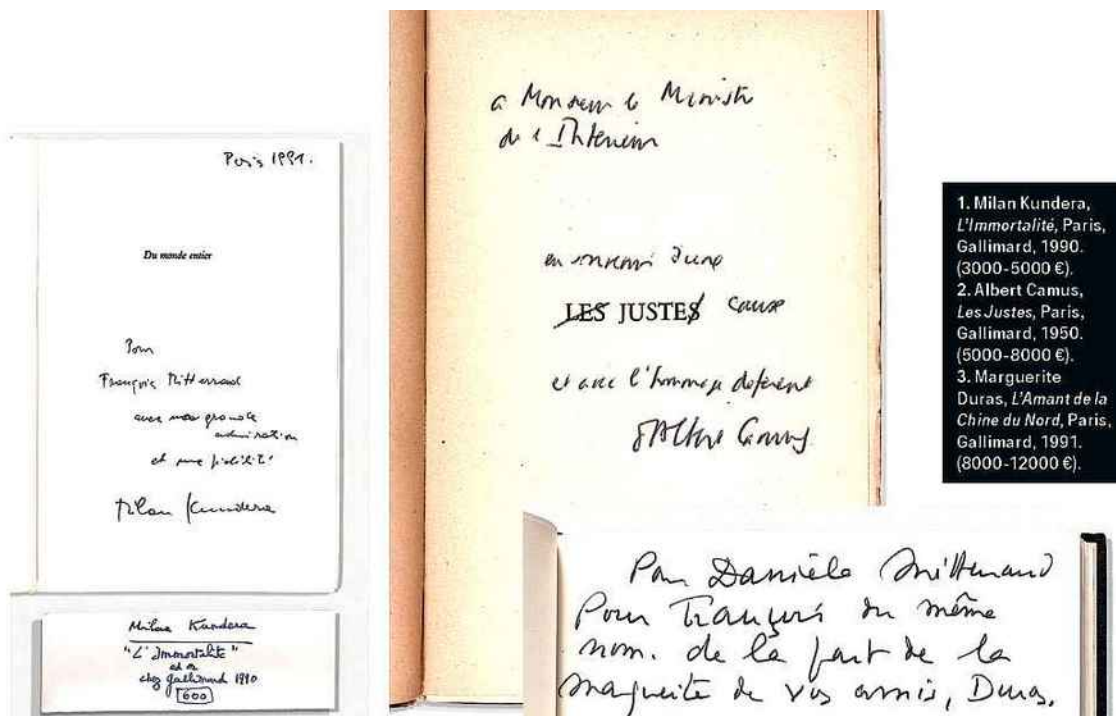 Paris 1991.
Du monde entier
Pour
François Mitterrand
avec ma grande
admiration
et ma fidélité
Milan Kundera
Milan Kundera
"L'Immortalité"
chez Gallimard 1990
600
a Monsieur le Ministre
de l'Intérieur
en souvenir d'une
LES JUSTES cause
et avec l'hommage déférent
d'Albert Camus
1. Milan Kundera,
L'Immortalité, Paris,
Gallimard, 1990.
(3000-5000 €).
2. Albert Camus,
Les Justes, Paris,
Gallimard, 1950.
(5000-8000 €).
3. Marguerite
Duras, L'Amant de la
Chine du Nord, Paris,
Gallimard, 1991.
(8000-12000 €).
Pour Danièle Mitterrand
Pour François du même
nom. de la part de la
marguerite de vos amis, Duras.